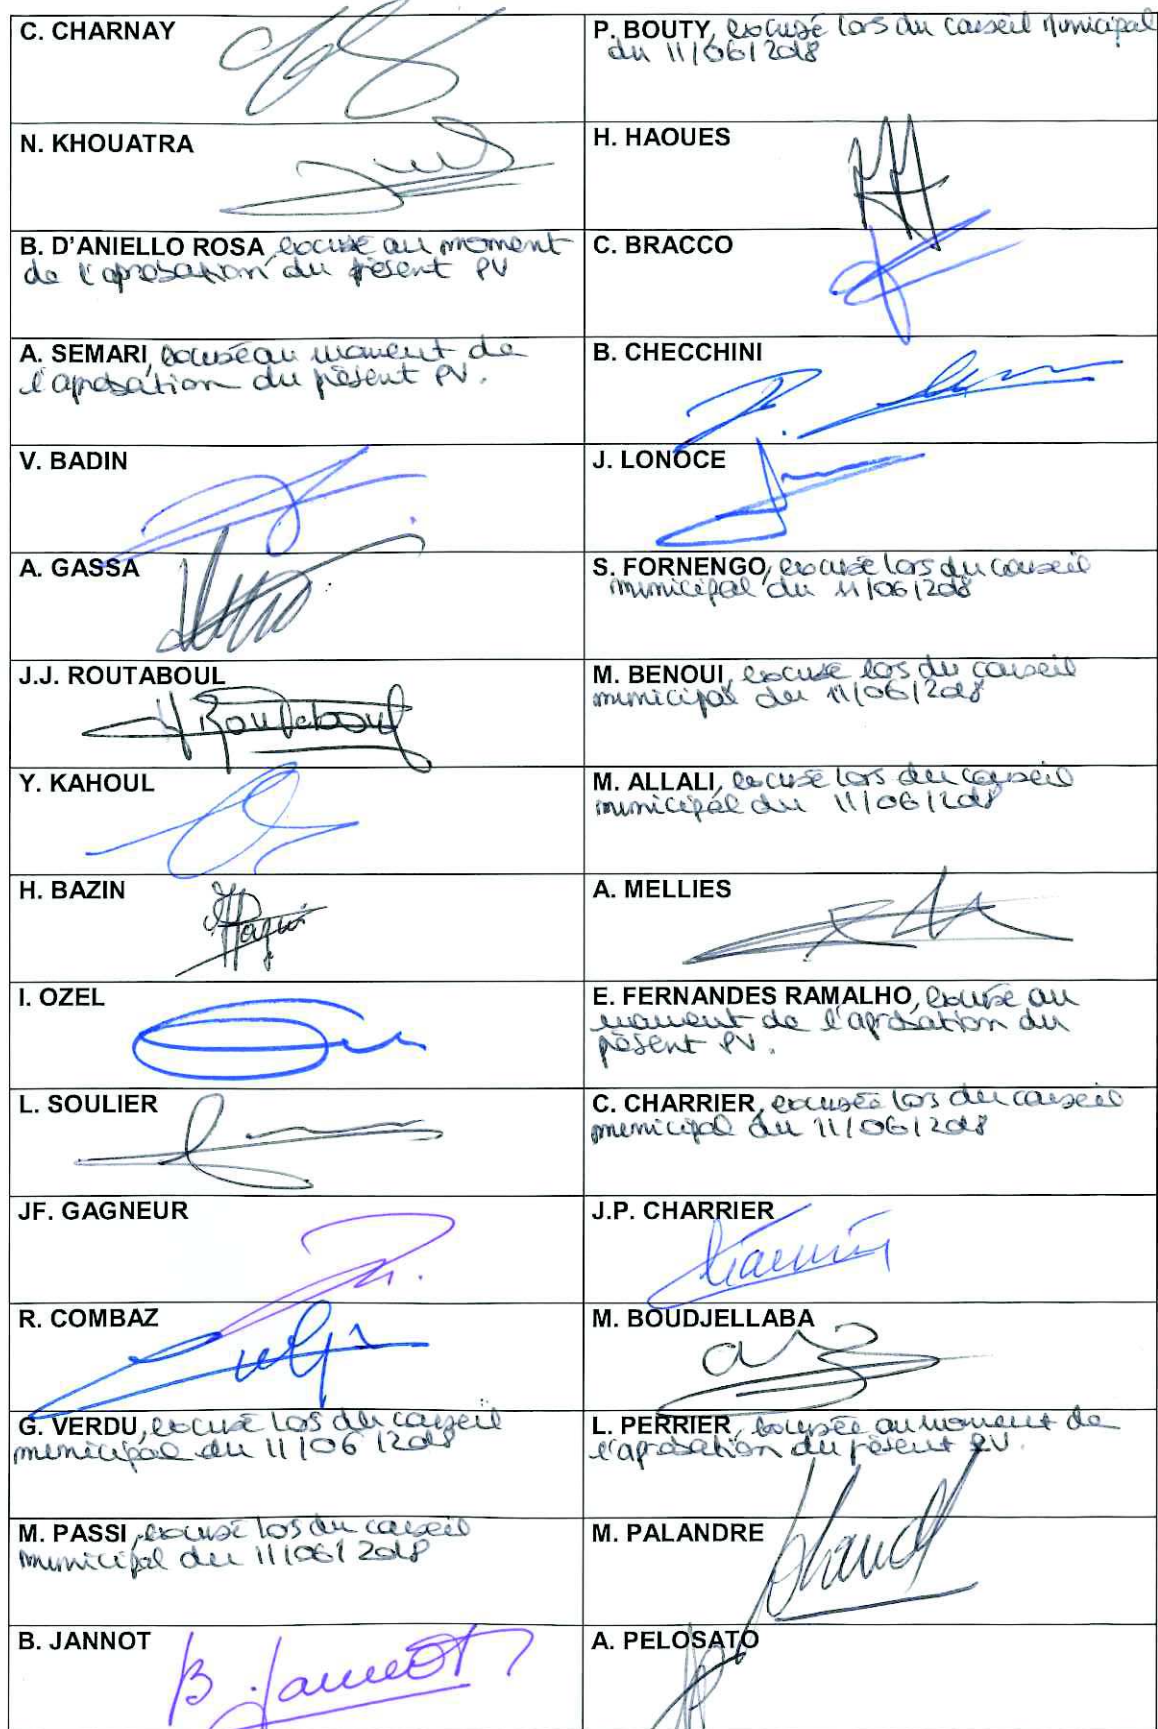 C. CHARNAY
P. BOUTY, excusé lors du conseil municipal
du 11/06/2018
N. KHOUATRA
H. HAOUES
B. D'ANIELLO ROSA, excusé au moment
de l'aprobation du présent PV
C. BRACCO
A. SEMARI, excusé au moment de
l'aprobation du présent PV.
B. CHECCHINI
V. BADIN
J. LONOCE
A. GASSA
S. FORNENGO, excusé lors du conseil
municipal du 11/06/2018
J.J. ROUTABOUL
Routaboul
M. BENOUI, excusé lors du conseil
municipal du 11/06/2018
Y. KAHOUL
M. ALLALI, excusé lors du conseil
municipal du 11/06/2018
H. BAZIN
A. MELLIES
I. OZEL
E. FERNANDES RAMALHO, excusé au
moment de l'aprobation du
présent PV.
L. SOULIER
C. CHARRIER, excusée lors du conseil
municipal du 11/06/2018
JF. GAGNEUR
J.P. CHARRIER
R. COMBAZ
M. BOUDJELLABA
G. VERDU, excusé lors du conseil
municipal du 11/06/2018
L. PERRIER, excusée au moment de
l'aprobation du présent PV.
M. PASSI, excusé lors du conseil
municipal du 11/06/2018
M. PALANDRE
B. JANNOT
B. Jannot
A. PELOSATO